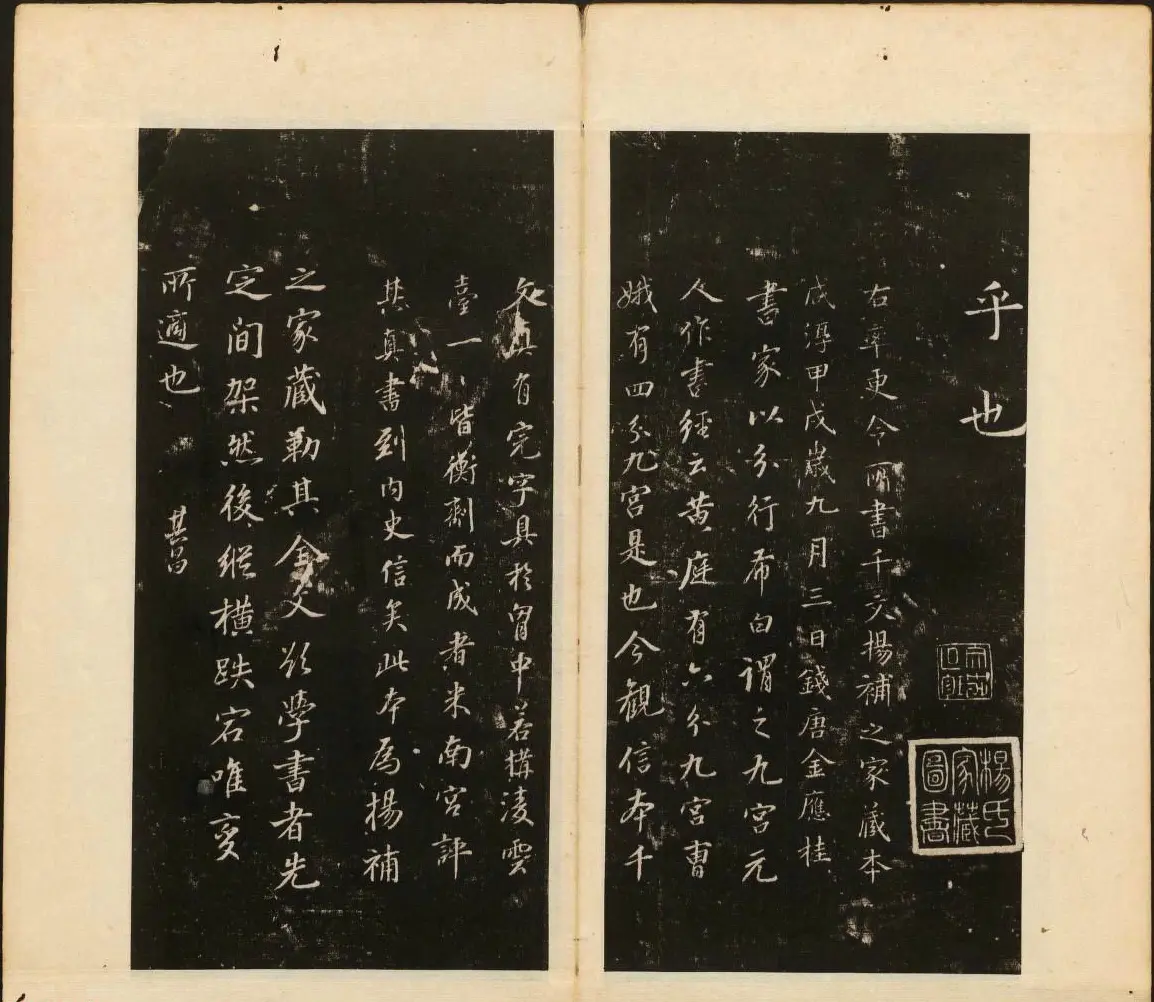 乎也
右率更令所書千文揚補之家藏本
咸淳甲戌歲九月三日錢唐金應桂
書家以分行布白謂之九宮元
人作書經云黃庭有六分九宮曹
娥有四分九宮是也今觀信本千
文真有完字具於胷中若構淩雲
臺一一皆衡劑而成者米南宮評
其真書到內史信矣此本爲揚補
之家藏勒其全文欲學書者先
定間架然後縱橫跌宕唯變
所適也
其昌
楊氏家藏圖書